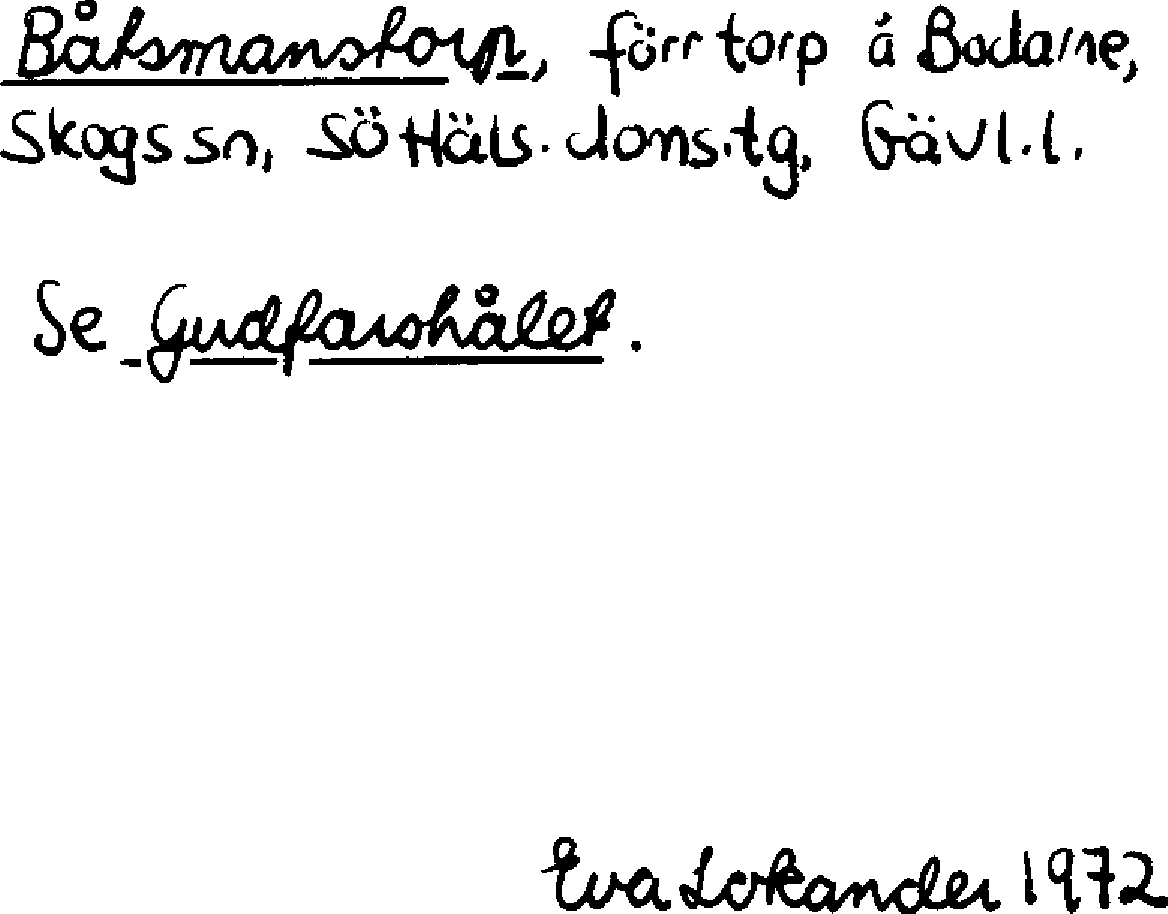 Båtsmanstorp, förr torp å Bodarne,
Skogs sn, Sö Häls. doms.tg, Gävl.l.
Se Gudfarshålet.
Eva Lokander 1972